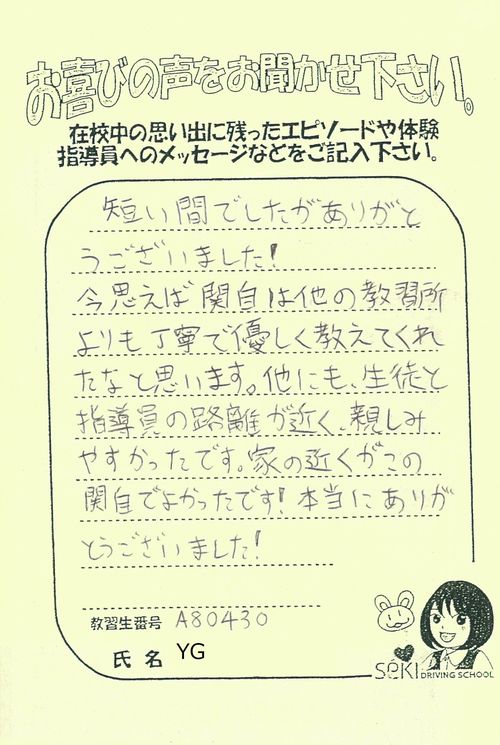 お喜びの声をお聞かせ下さい。
在校中の思い出に残ったエピソードや体験
指導員へのメッセージなどをご記入下さい。
短い間でしたがありがと
うございました!
今思えば関自は他の教習所
よりも丁寧で優しく教えてくれ
たなと思います。他にも、生徒と
指導員の路離が近く、親しみ
やすかったです。家の近くがこの
関自でよかったです!本当にありが
とうございました!
教習生番号 A80430
氏名 YG
SEKI DRIVING SCHOOL